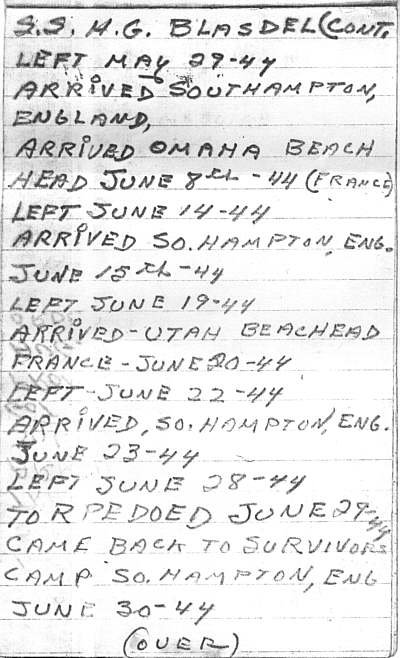 S.S. H.G. BLASDEL (CONT.
LEFT MAY 29-44
ARRIVED TO SOUTHAMPTON,
ENGLAND,
ARRIVED OMAHA BEACH
HEAD JUNE 8th - 44 (FRANCE)
LEFT JUNE 14-44
ARRIVED SO. HAMPTON, ENG.
JUNE 15th-44
LEFT JUNE 19-44
ARRIVED-UTAH BEACHEAD
FRANCE - JUNE 20-44
LEFT-JUNE 22-44
ARRIVED, SO. HAMPTON, ENG.
JUNE 23-44
LEFT JUNE 28-44
TORPEDOED JUNE 29-44
CAME BACK TO SURVIVORS
CAMP SO. HAMPTON, ENG
JUNE 30-44
(OVER)